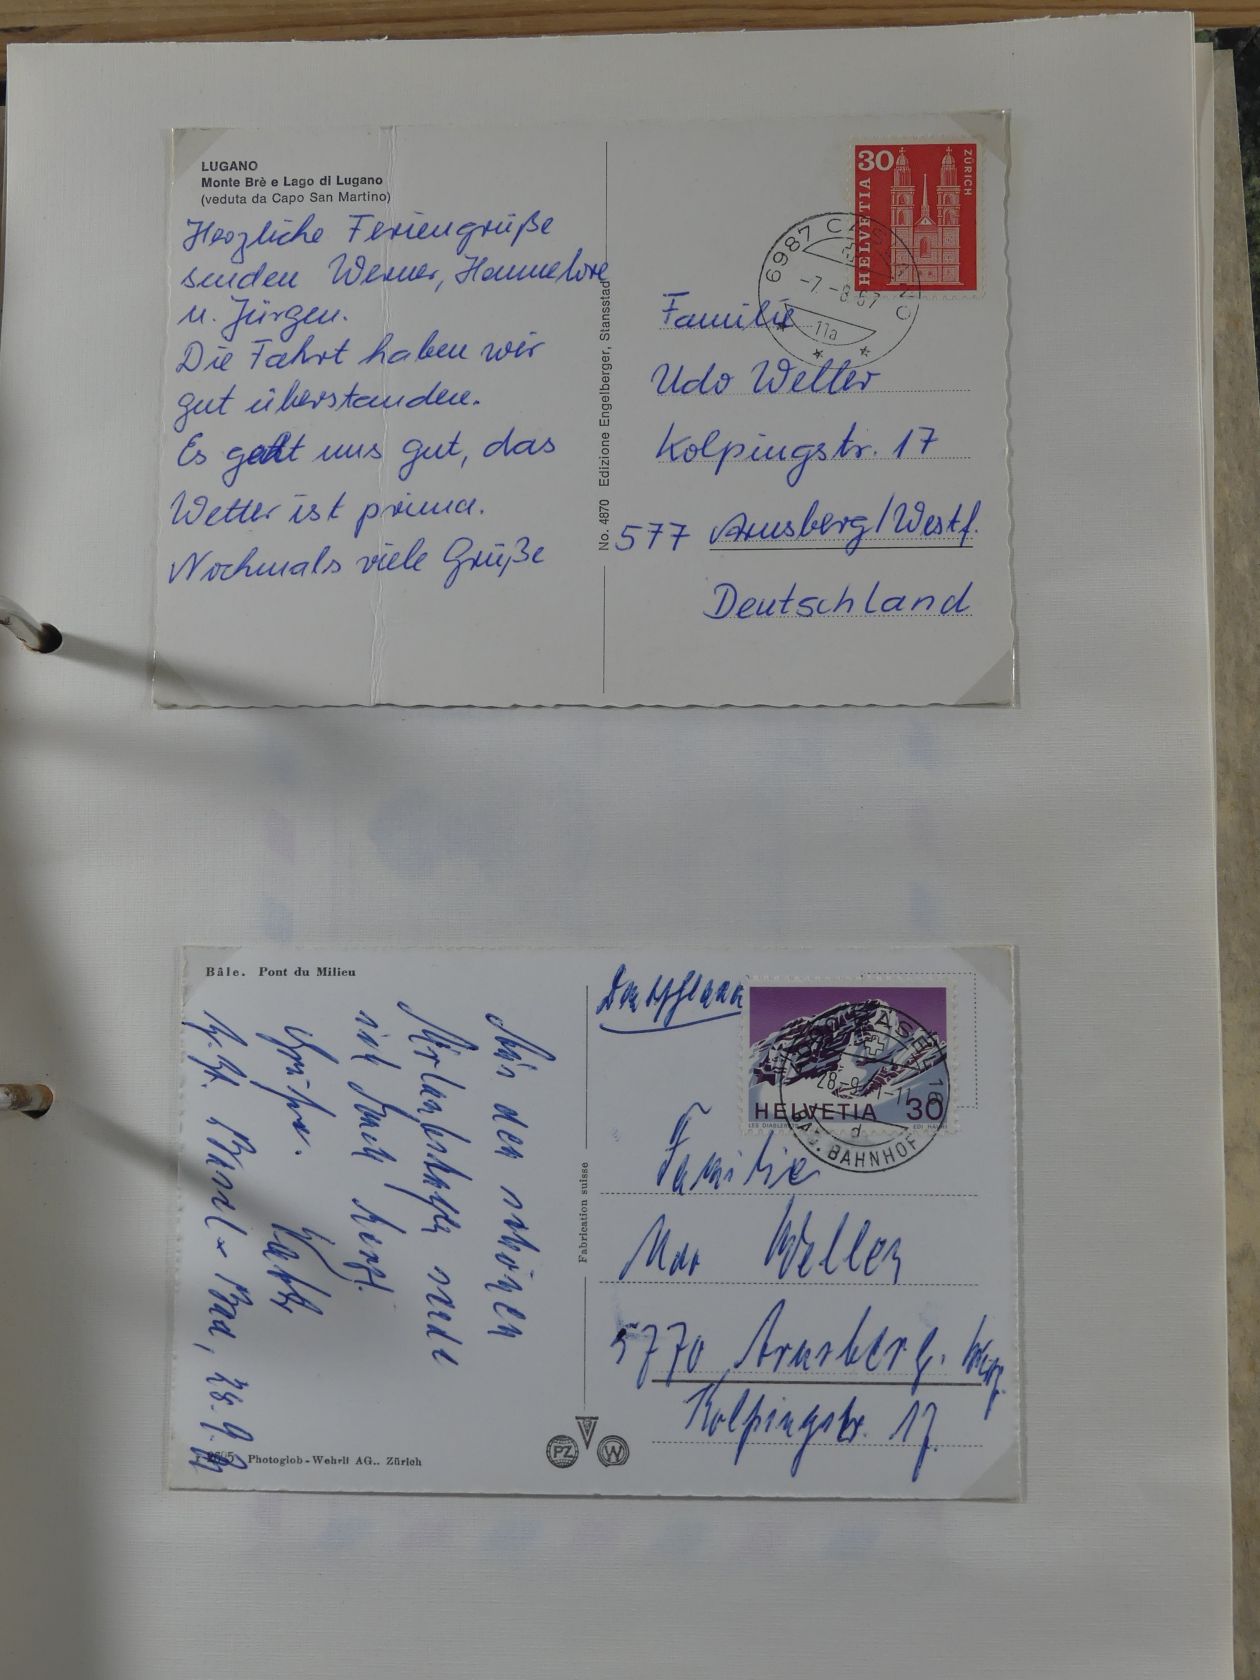 LUGANO
Monte Brè e Lago di Lugano
(veduta da Capo San Martino)
Herzliche Feriengrüße
senden Werner, Hannelore
u. Jürgen.
Die Fahrt haben wir
gut überstanden.
Es geht uns gut, das
Wetter ist prima.
Nochmals viele Grüße
No. 4870 Edizione Engelberger, Stansstad
30
HELVETIA
ZÜRICH
6987
-7.-8.67
11a
Familie
Udo Welter
Kolpingstr. 17
577 Arnsberg/Westf.
Deutschland
Bâle. Pont du Milieu
Aus den schönen
ist Euch herzl.
Grüße.
28.9.
Photoglob-Wehrli AG., Zürich
Fabrication suisse
PZ
W
Deutschland
HELVETIA 30
LES DIABLERETS
BASEL
28-9
BAD. BAHNHOF
d
Familie
5770 Arnsberg.
Kolpingstr. 17.